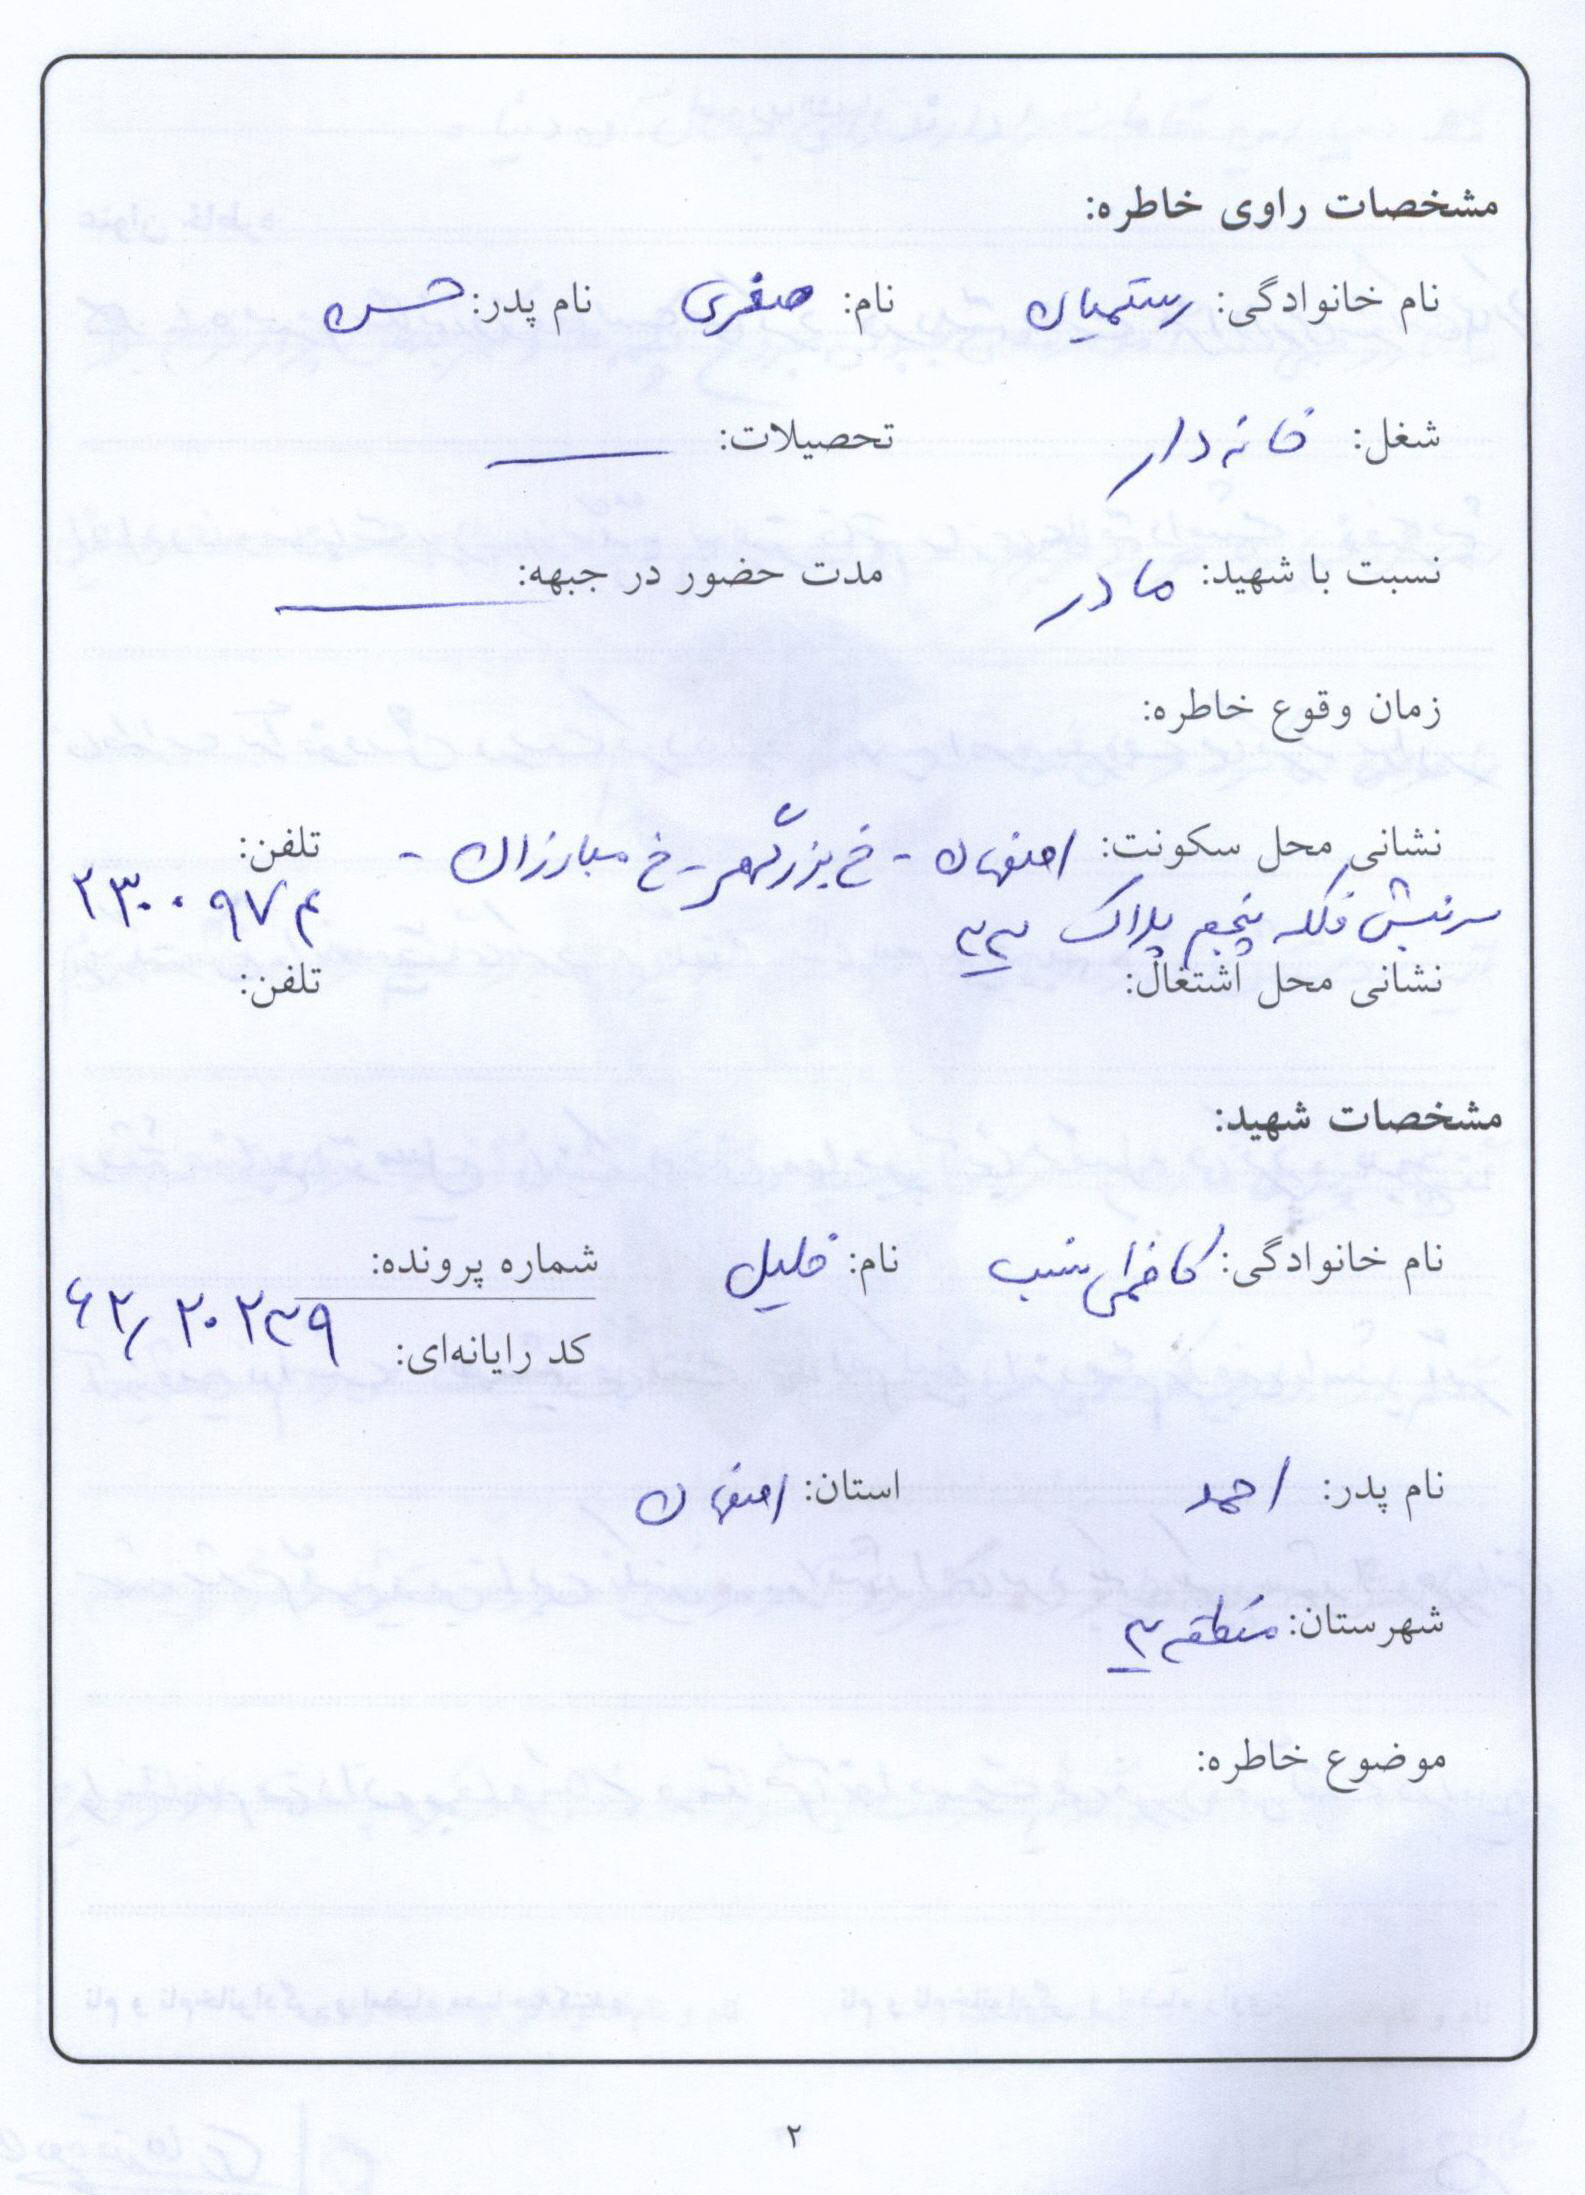 مشخصات راوی خاطره:
نام خانوادگی: رستمیان نام: صغری نام پدر: حسن
شغل: خانه دار تحصیلات: ــــــ
نسبت با شهید: مادر مدت حضور در جبهه: ــــــ
زمان وقوع خاطره:
نشانی محل سکونت: اصفهان - خ بزرگمهر - خ مبارزان - تلفن:
سرنبش فلکه پنجم پلاک ۳۳
نشانی محل اشتغال: تلفن:
مشخصات شهید:
نام خانوادگی: کاظمی نسب نام: خلیل شماره پرونده:
کد رایانه‌ای:
نام پدر: احمد استان: اصفهان
شهرستان: منطقه ۳
موضوع خاطره:
۲